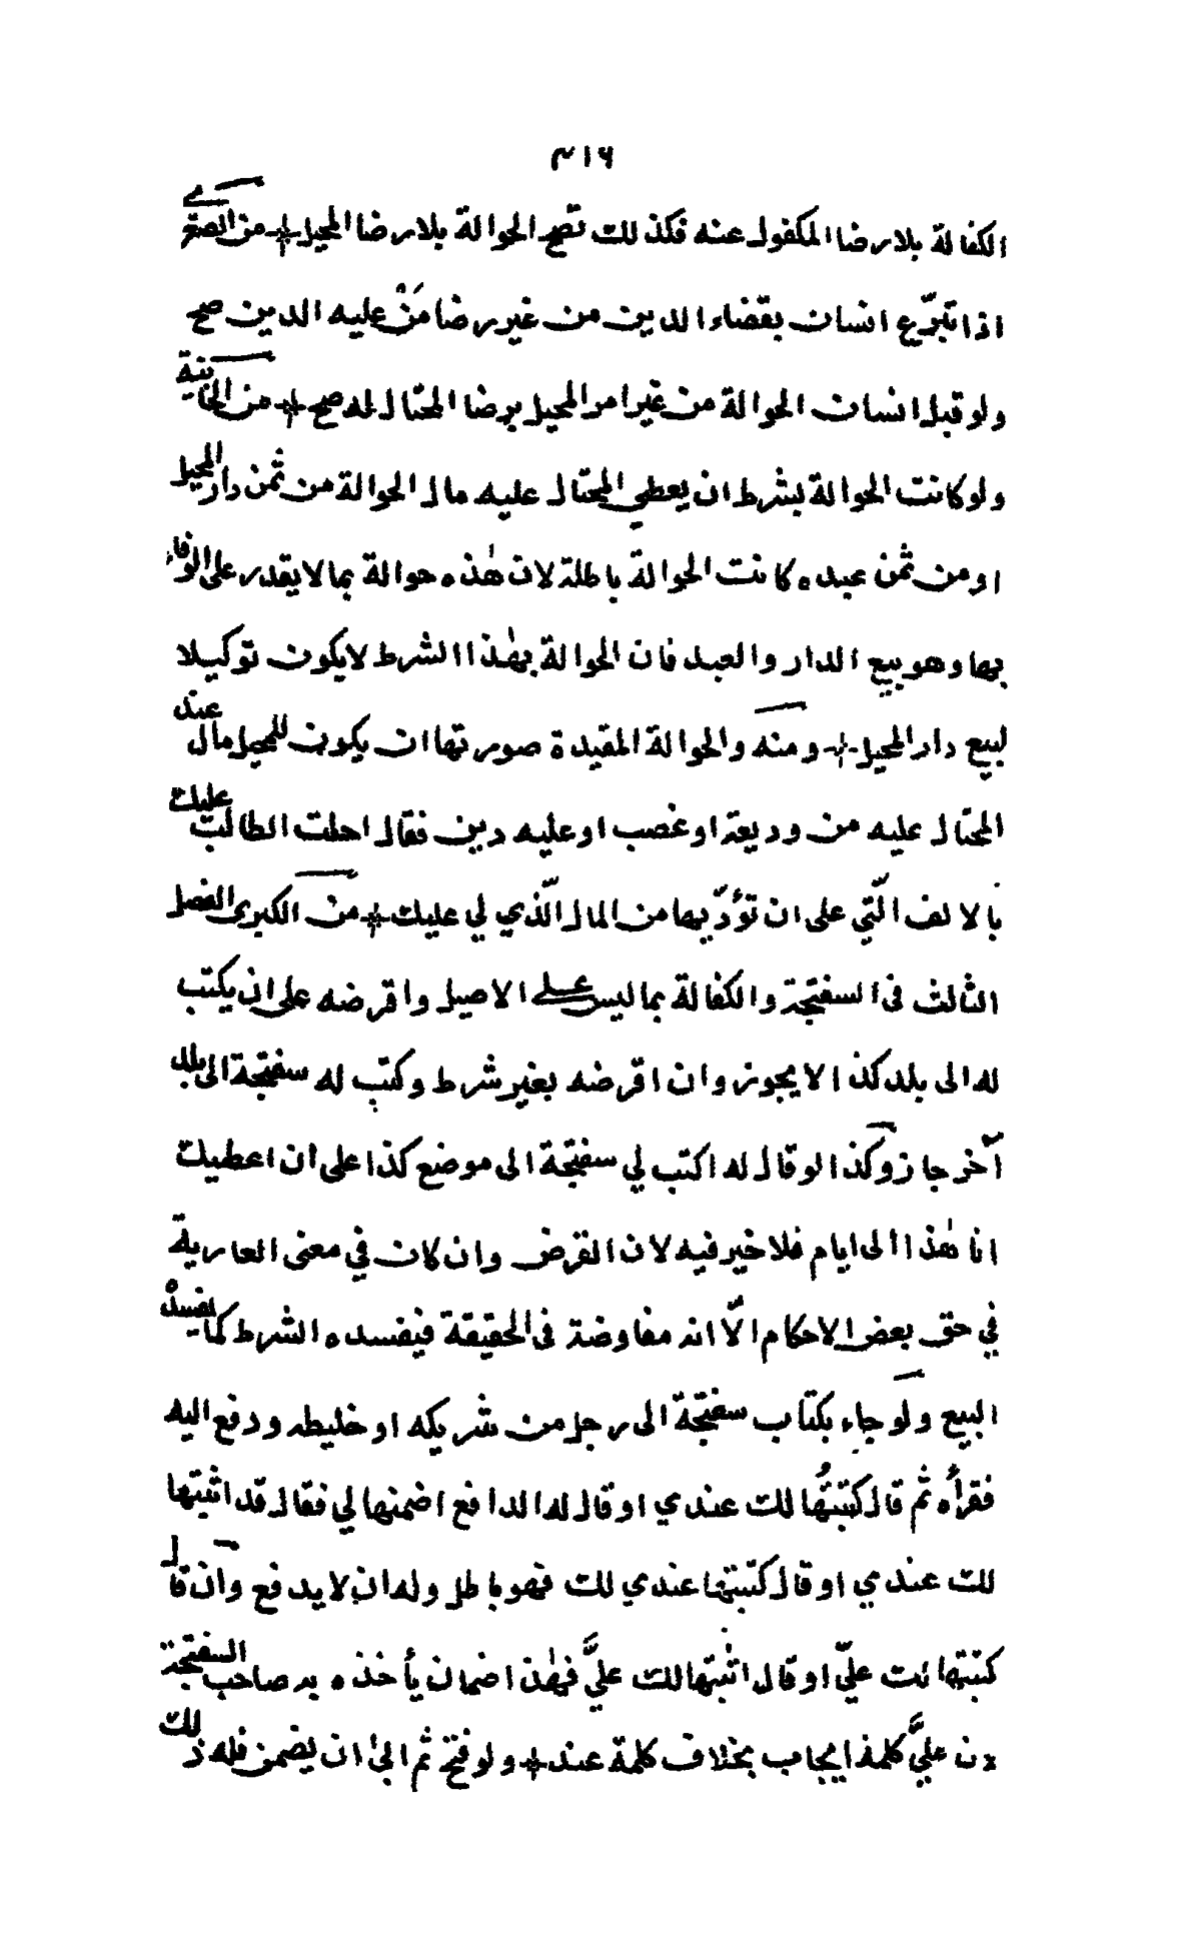 ٣١٦
الكفالة بلا رضا المكفول عنه فكذلك تصح الحوالة بلا رضا المحيل + من الصغرى
اذا تبرّع انسان بقضاء الدين من غير رضا مَنْ عليه الدين صح
ولو قبل انسان الحوالة من غير امر المحيل برضا المحتال له صح + من الخانية
ولو كانت الحوالة بشرط ان يعطي المحتال عليه مال الحوالة من ثمن دار المحيل
او من ثمن عبده كانت الحوالة باطلة لان هٰذه حوالة بما لا يقدر على الوفاء
بها وهو بيع الدار والعبد فان الحوالة بهٰذا الشرط لا يكون توكيلا
لبيع دار المحيل + ومنه والحوالة المقيدة صورتها ان يكون للمحيل مال عند
المحتال عليه من وديعة او غصب او عليه دين فقال احلت الطالب عليك
بالالف الّتي على ان تؤدّيها من المال الّذي لي عليك + من الكبرى الفصل
الثالث فى السفتجة والكفالة بما ليس على الاصيل واقرضه على ان يكتب
له الى بلد كذا لا يجوز وان اقرضه بغير شرط وكتب له سفتجة الى بلد
آخر جاز وكذا لو قال له اكتب لي سفتجة الى موضع كذا على ان اعطيك
انا هٰذا الى ايام فلا خير فيه لان القرض وان كان في معنى العارية
في حق بعض الاحكام الّا انه مفاوضة فى الحقيقة فيفسده الشرط كما يفسدْ
البيع ولو جاء بكتاب سفتجة الى رجل من شريكه او خليطه ودفع اليه
فقرأه ثم قال كتبتُها لك عندي او قال له الدافع اضمنها لي فقال قد اثبتها
لك عندي او قال كتبتها عندي لك فهو باطل وله ان لا يدفع وان قال
كتبتها لك عليّ او قال اثبتها لك عليَّ فهٰذا ضمان يأخذه به صاحب السفتجة
لان عليَّ كلمة ايجاب بخلاف كلمة عند + ولو فتح ثم ابى ان يضمن فله ذلك